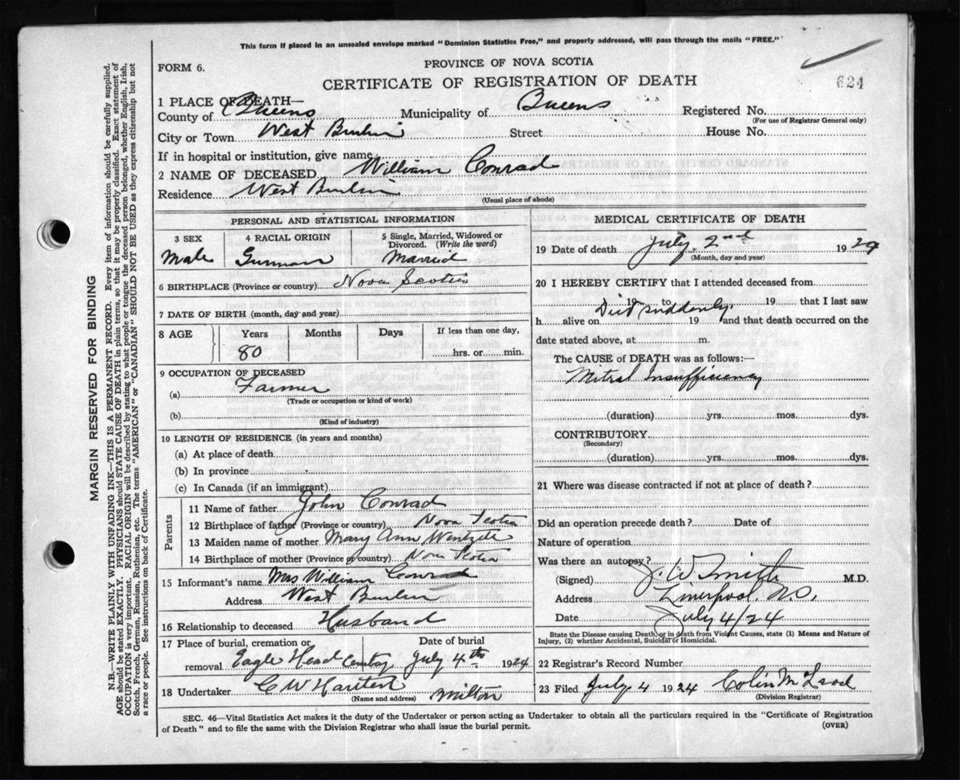 This form if placed in an unsealed envelope marked "Dominion Statistics Free," and properly addressed, will pass through the mails "FREE."
FORM 6.
PROVINCE OF NOVA SCOTIA
CERTIFICATE OF REGISTRATION OF DEATH
624
1 PLACE OF DEATH—
County of Queens Municipality of Queens Registered No.
(For use of Registrar General only)
City or Town West Berlin Street House No.
If in hospital or institution, give name
2 NAME OF DECEASED William Conrad
Residence West Berlin
(Usual place of abode)
PERSONAL AND STATISTICAL INFORMATION
3 SEX 4 RACIAL ORIGIN 5 Single, Married, Widowed or Divorced. (Write the word)
Male German Married
6 BIRTHPLACE (Province or country) Nova Scotia
7 DATE OF BIRTH (month, day and year)
8 AGE Years Months Days If less than one day,
80 hrs. or min.
9 OCCUPATION OF DECEASED
(a) Farmer
(Trade or occupation or kind of work)
(b)
(Kind of industry)
10 LENGTH OF RESIDENCE (in years and months)
(a) At place of death
(b) In province
(c) In Canada (if an immigrant)
Parents
11 Name of father John Conrad
12 Birthplace of father (Province or country) Nova Scotia
13 Maiden name of mother Mary Ann
14 Birthplace of mother (Province or country) Nova Scotia
15 Informant's name Mrs William Conrad
Address West Berlin
16 Relationship to deceased Husband
17 Place of burial, cremation or removal Date of burial
Eagle Head July 4th 1924
18 Undertaker C W Milton
(Name and address)
MEDICAL CERTIFICATE OF DEATH
19 Date of death July 2nd 1924
(Month, day and year)
20 I HEREBY CERTIFY that I attended deceased from
19 to 19 that I last saw
Died suddenly
h alive on 19 and that death occurred on the
date stated above, at m.
The CAUSE of DEATH was as follows:—
Mitral Insufficiency
(duration) yrs. mos. dys.
CONTRIBUTORY
(Secondary)
(duration) yrs. mos. dys.
21 Where was disease contracted if not at place of death?
Did an operation precede death? Date of
Nature of operation
Was there an autopsy?
(Signed) J. W. Smith M.D.
Address Liverpool, N.S.
Date July 4/24
State the Disease causing Death, or in death from Violent Causes, state (1) Means and Nature of
Injury, (2) whether Accidental, Suicidal or Homicidal.
22 Registrar's Record Number
23 Filed July 4 1924 Colin McLeod
(Division Registrar)
SEC. 46—Vital Statistics Act makes it the duty of the Undertaker or person acting as Undertaker to obtain all the particulars required in the "Certificate of Registration
of Death" and to file the same with the Division Registrar who shall issue the burial permit.
(OVER)
MARGIN RESERVED FOR BINDING
N.B.—WRITE PLAINLY WITH UNFADING INK—THIS IS A PERMANENT RECORD. Every item of information should be carefully supplied.
AGE should be stated EXACTLY. PHYSICIANS should STATE CAUSE OF DEATH in plain terms, so that it may be properly classified. Exact statement of
OCCUPATION is very important. RACIAL ORIGIN will be described by stating to what people or tongue the deceased person belonged, whether English, Irish,
Scotch, French, German, Russian, Ruthenian, etc. The terms "AMERICAN" or "CANADIAN" SHOULD NOT BE USED as they express citizenship but not
a race or people. See instructions on back of Certificate.